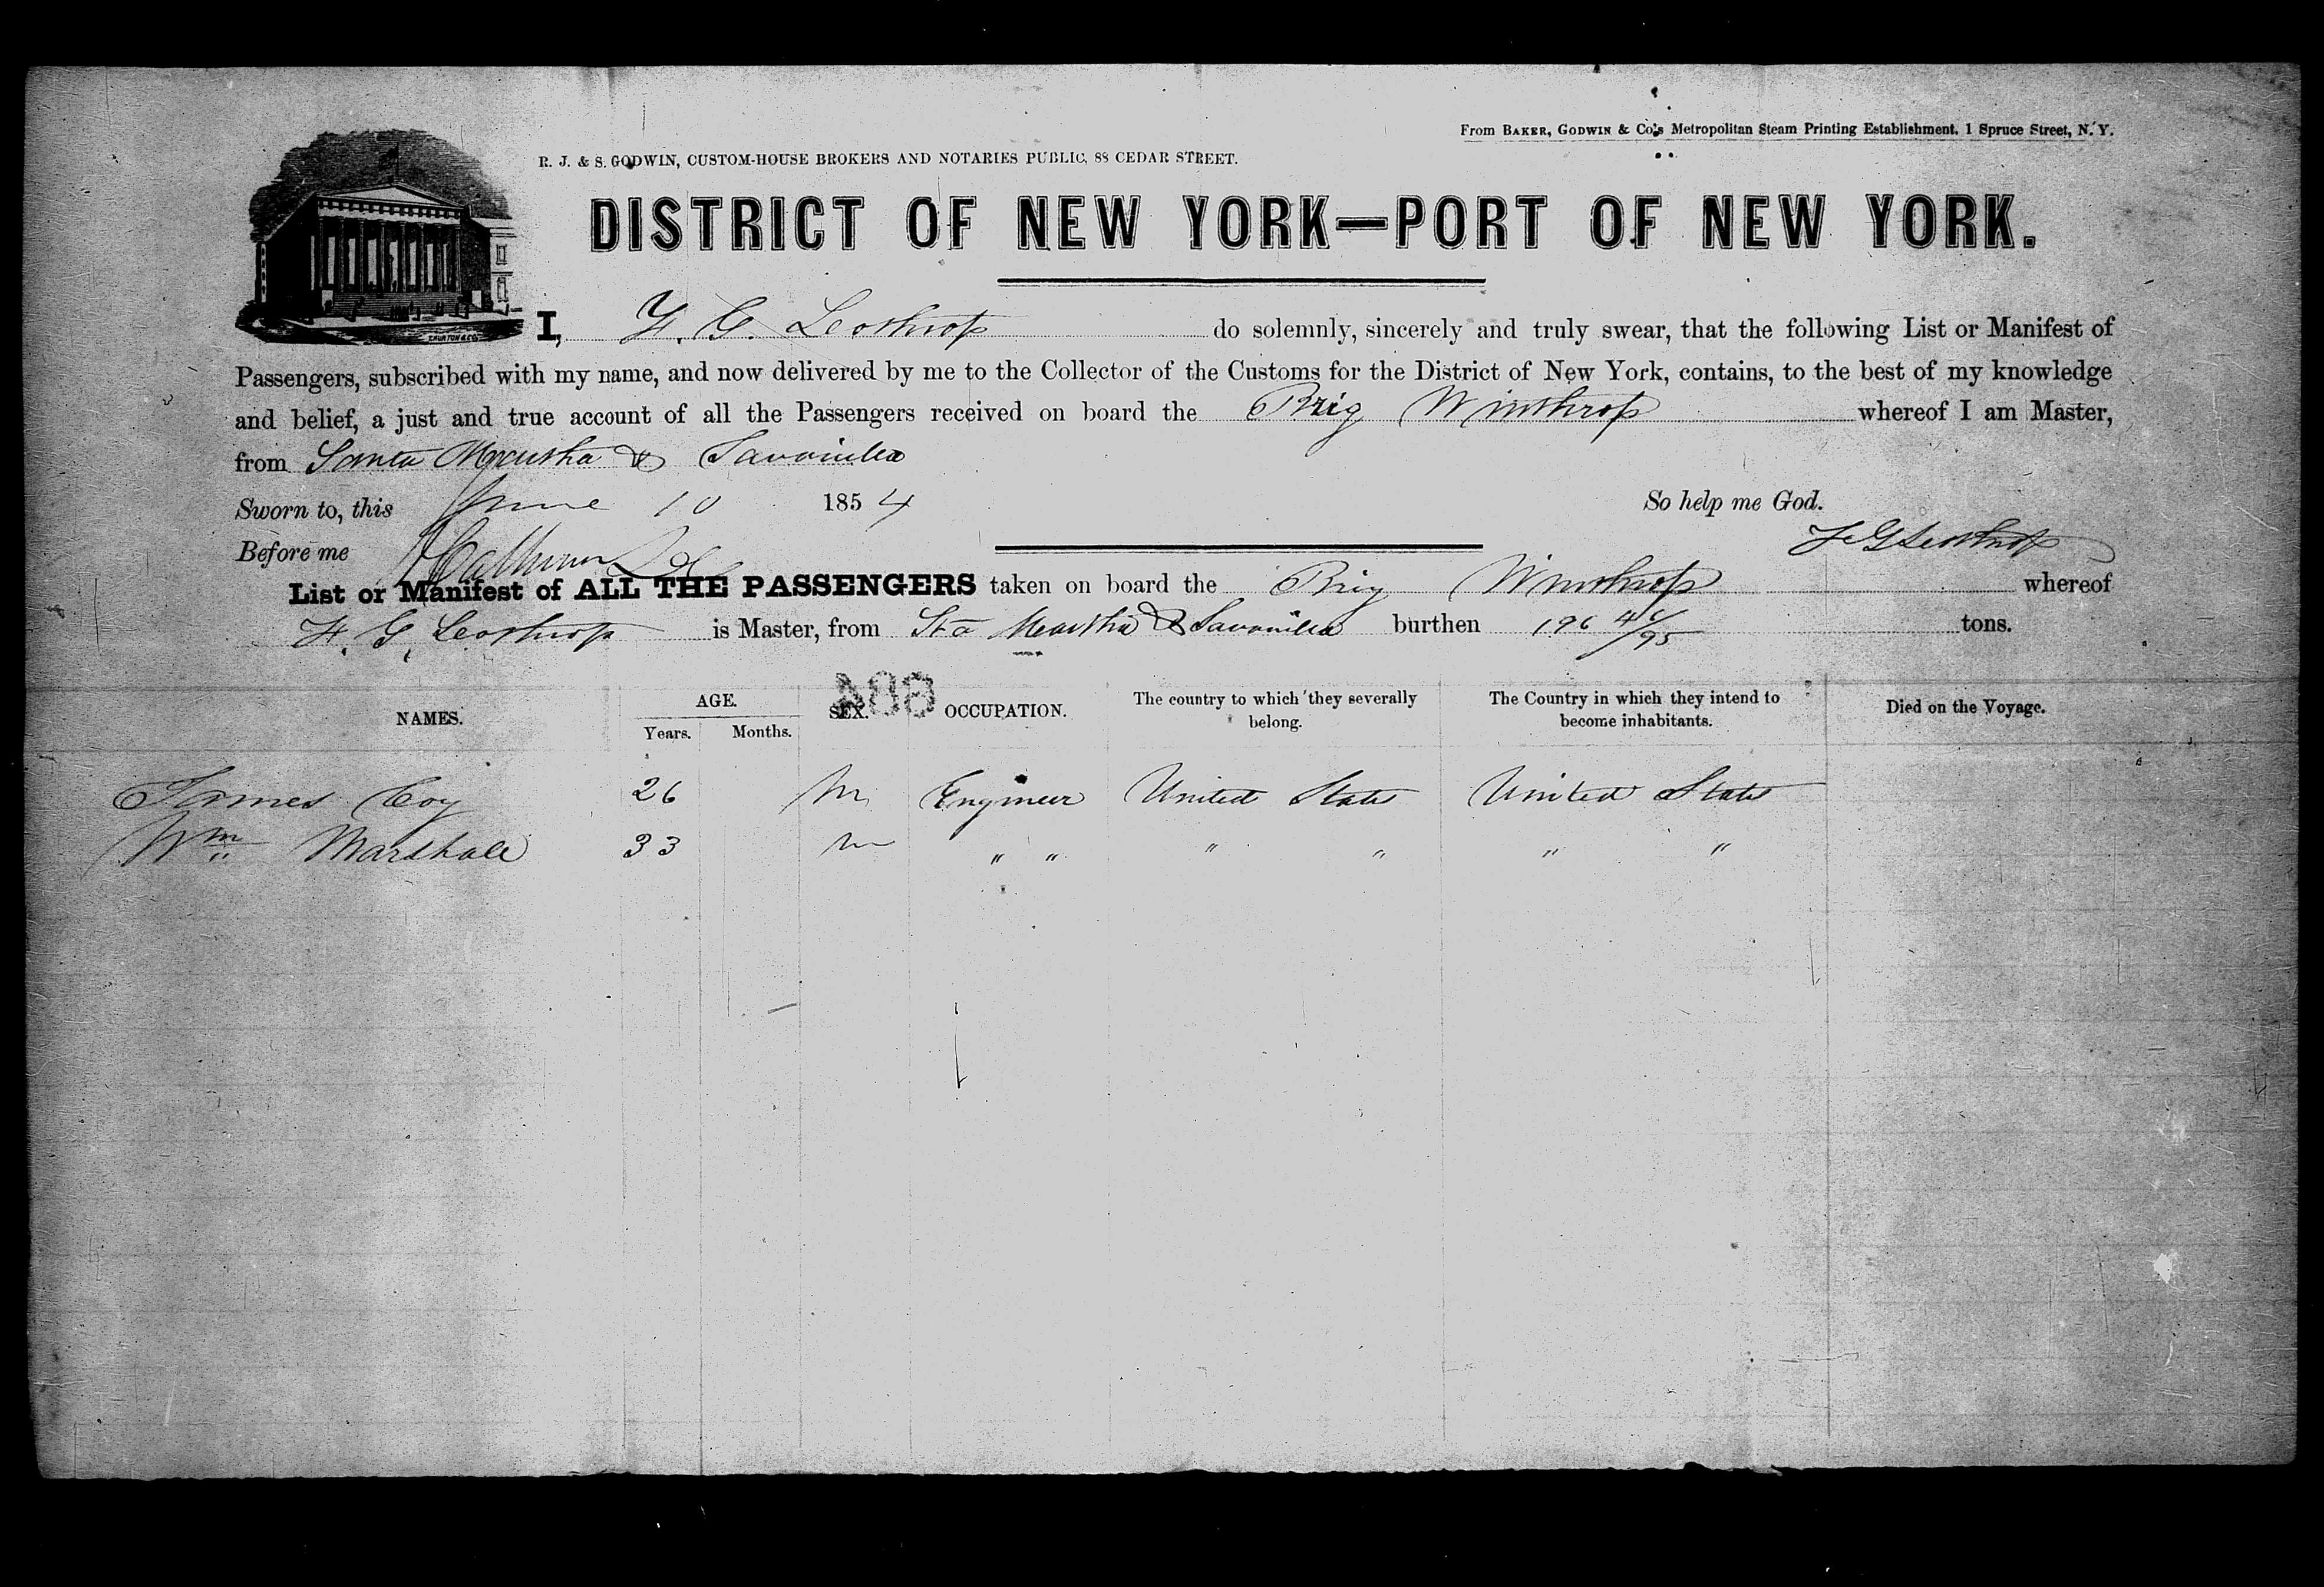 From BAKER, GODWIN & Co's Metropolitan Steam Printing Establishment, 1 Spruce Street, N. Y.
R. J. & S. GODWIN, CUSTOM-HOUSE BROKERS AND NOTARIES PUBLIC, 88 CEDAR STREET.
DISTRICT OF NEW YORK—PORT OF NEW YORK.
I, G. do solemnly, sincerely and truly swear, that the following List or Manifest of
Passengers, subscribed with my name, and now delivered by me to the Collector of the Customs for the District of New York, contains, to the best of my knowledge
and belief, a just and true account of all the Passengers received on board the Brig Winthrop whereof I am Master,
from Santa Martha & Savanilla
Sworn to, this June 10 1854 So help me God.
Before me
List or Manifest of ALL THE PASSENGERS taken on board the Brig Winthrop whereof
G. is Master, from Sta Martha & Savanilla burthen 196 tons.
NAMES. AGE. SEX. OCCUPATION. The country to which they severally belong. The Country in which they intend to become inhabitants. Died on the Voyage.
Years. Months.
James Coy 26 M Engineer United States United States
Wm Marshall 33 M " " " " " "